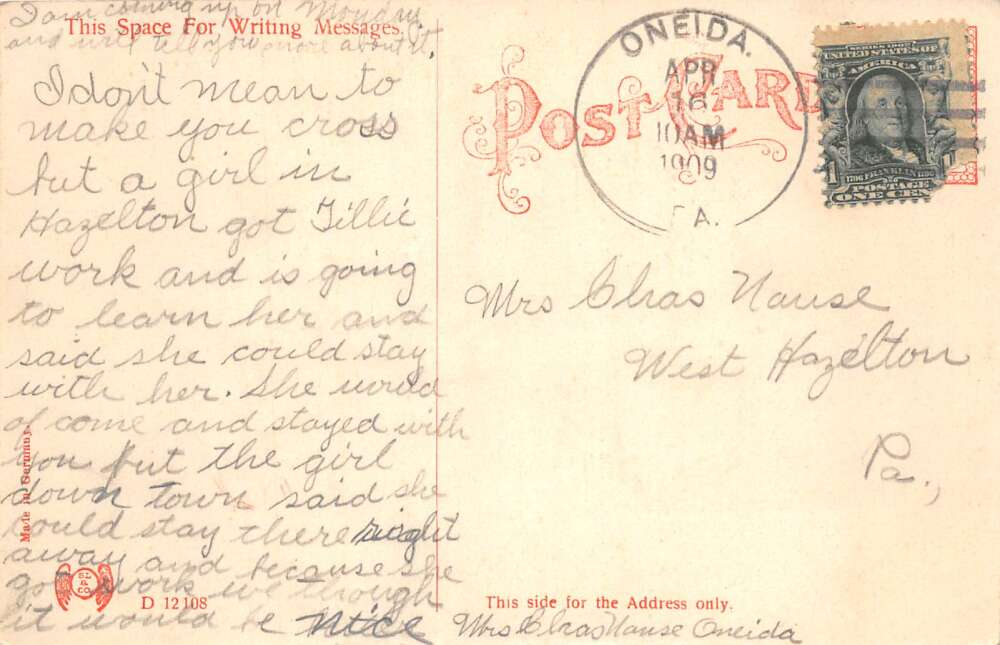 I am coming up on Monday
This Space For Writing Messages.
and will tell you more about it.
I don't mean to
make you cross
but a girl in
Hazelton got Tillie
work and is going
to learn her and
said she could stay
with her. She would
of come and stayed with
you but the girl
down town said she
could stay there right
away and because she
got work we though
it would be nice
Made in Germany.
D 12108
POST CARD
ONEIDA.
APR
16
10AM
1909
PA.
SERIES 1902
UNITED STATES OF
AMERICA
1706 FRANKLIN 1790
1
POSTAGE
ONE CENT
Mrs Chas Nause
West Hazelton
Pa.,
This side for the Address only.
Mrs Chas Nause Oneida